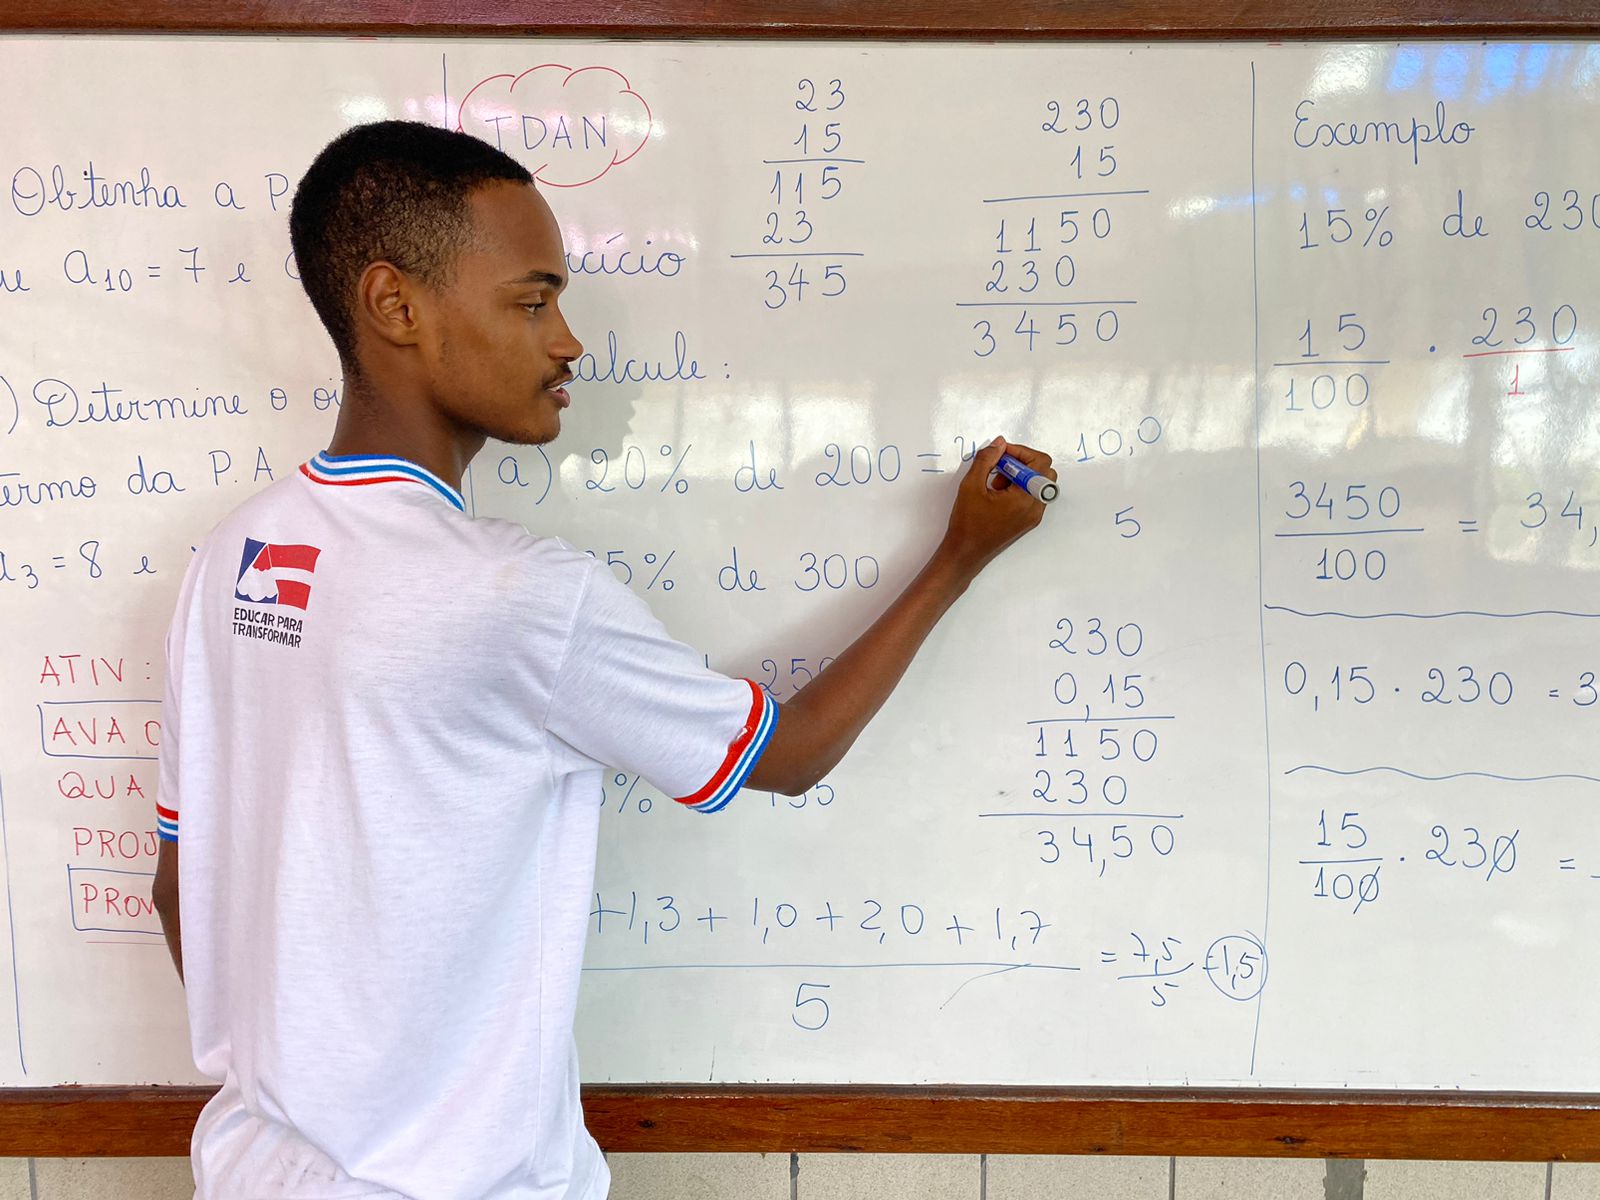 Obtenha a P
ue a10 = 7 e
) Determine o
ermo da P.A
a3 = 8 e
ATIV:
AVA
QUA
PROJ
PROV
EDUCAR PARA
TRANSFORMAR
TDAN
rcício
alcule:
a) 20% de 200 =
5% de 300
25
% 135
+1,3 + 1,0 + 2,0 + 1,7
5
= 7,5
5
= 1,5
23
15
115
23
345
230
15
1150
230
3450
10,0
5
230
0,15
1150
230
34,50
Exemplo
15% de 230
15 . 230
100 1
3450 = 34,
100
0,15 . 230 = 3
15 . 230 =
100